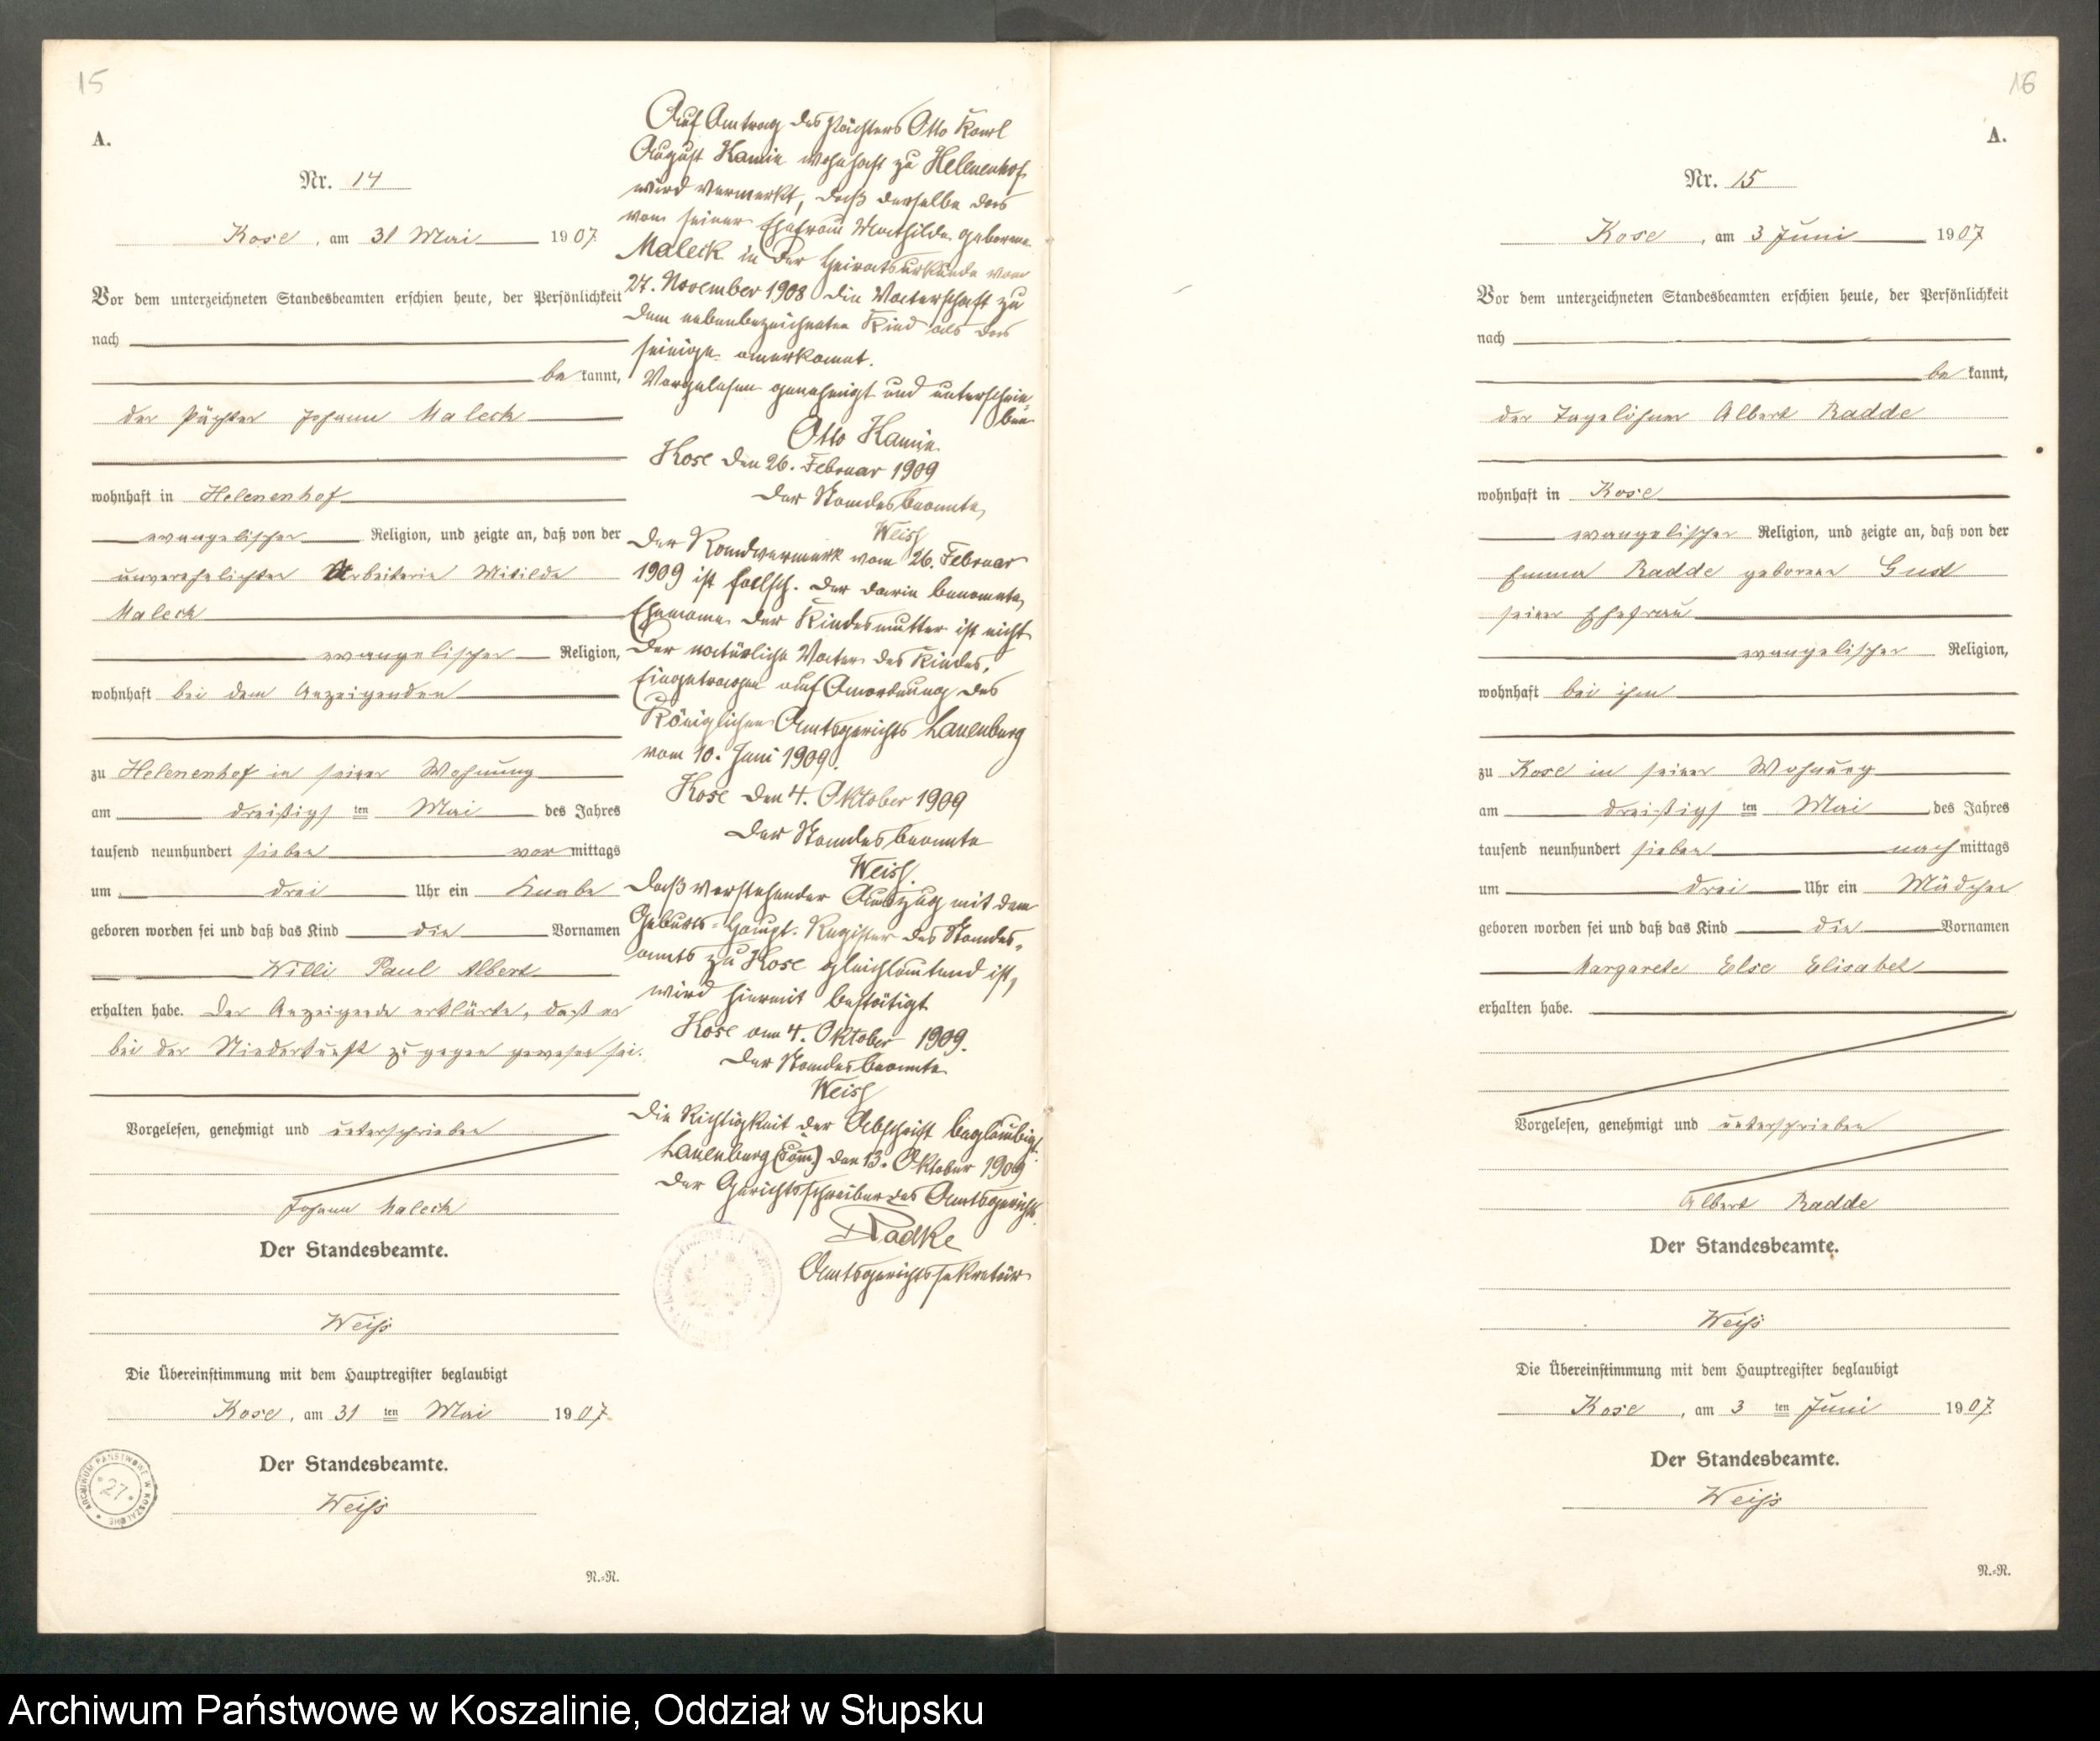 15
A.
Nr. 14
Kose, am 31 Mai 1907
Vor dem unterzeichneten Standesbeamten erschien heute, der Persönlichkeit
nach
be kannt,
der Pächter Johann Maleck
wohnhaft in Helenenhof
evangelischer Religion, und zeigte an, daß von der
unverehelichten Arbeiterin Mitilde
Maleck
evangelischer Religion,
wohnhaft bei dem Anzeigenden
zu Helenenhof in seiner Wohnung
am dreißigs ten Mai des Jahres
tausend neunhundert sieben vor mittags
um drei Uhr ein Knabe
geboren worden sei und daß das Kind die Vornamen
Willi Paul Albert
erhalten habe. Der Anzeigende erklärte, daß er
bei der Niederkunft zugegen gewesen sei.
Vorgelesen, genehmigt und unterschrieben
Johann Maleck
Der Standesbeamte.
Weiß
Die Übereinstimmung mit dem Hauptregister beglaubigt
Kose, am 31 ten Mai 1907.
Der Standesbeamte.
Weiß
ARCHIWUM PAŃSTWOWE W KOSZALINIE
27
N.=N.
Auf Antrag des Pächters Otto Karl
August Kamin wohnhaft zu Helenenhof
wird vermerkt, daß derselbe das
von seiner Ehefrau Mathilde geborene
Maleck in der Heiratsurkunde vom
27. November 1908 die Vaterschaft zu
dem nebenbezeichneten Kind als das
seinige anerkannt.
Vorgelesen genehmigt und unterschrie-
ben
Otto Kamin.
Kose den 26. Februar 1909
Der Standesbeamte,
Weiß
Der Randvermerk vom 26. Februar
1909 ist falsch. Der darin benannte,
Ehemann der Kindesmutter ist nicht
der natürliche Vater des Kindes.
Eingetragen auf Anordnung des
Königlichen Amtsgerichts Lauenburg
vom 10. Juni 1909.
Kose den 4. Oktober 1909
Der Standesbeamte
Weiß.
Daß vorstehender Auszug mit dem
Geburts-Haupt-Register des Standes-
amts zu Kose gleichlautend ist,
wird hiermit bestätigt
Kose am 4. Oktober 1909.
Der Standesbeamte
Weiß
Die Richtigkeit der Abschrift beglaubigt.
Lauenburg (Pom.) den 13. Oktober 1909
Der Gerichtsschreiber des Amtsgerichts.
Radke
Amtsgerichtssekretär
16
A.
Nr. 15
Kose, am 3 Juni 1907
Vor dem unterzeichneten Standesbeamten erschien heute, der Persönlichkeit
nach
be kannt,
der Tagelöhner Albert Radde
wohnhaft in Kose
evangelischer Religion, und zeigte an, daß von der
Emma Radde geborene Gust
seiner Ehefrau
evangelischer Religion,
wohnhaft bei ihm
zu Kose in seiner Wohnung
am dreißigs ten Mai des Jahres
tausend neunhundert sieben nach mittags
um drei Uhr ein Mädchen
geboren worden sei und daß das Kind die Vornamen
Margarete Else Elisabet
erhalten habe.
Vorgelesen, genehmigt und unterschrieben
Albert Radde
Der Standesbeamte.
Weiß
Die Übereinstimmung mit dem Hauptregister beglaubigt
Kose, am 3 ten Juni 1907.
Der Standesbeamte.
Weiß
N.=N.
Archiwum Państwowe w Koszalinie, Oddział w Słupsku